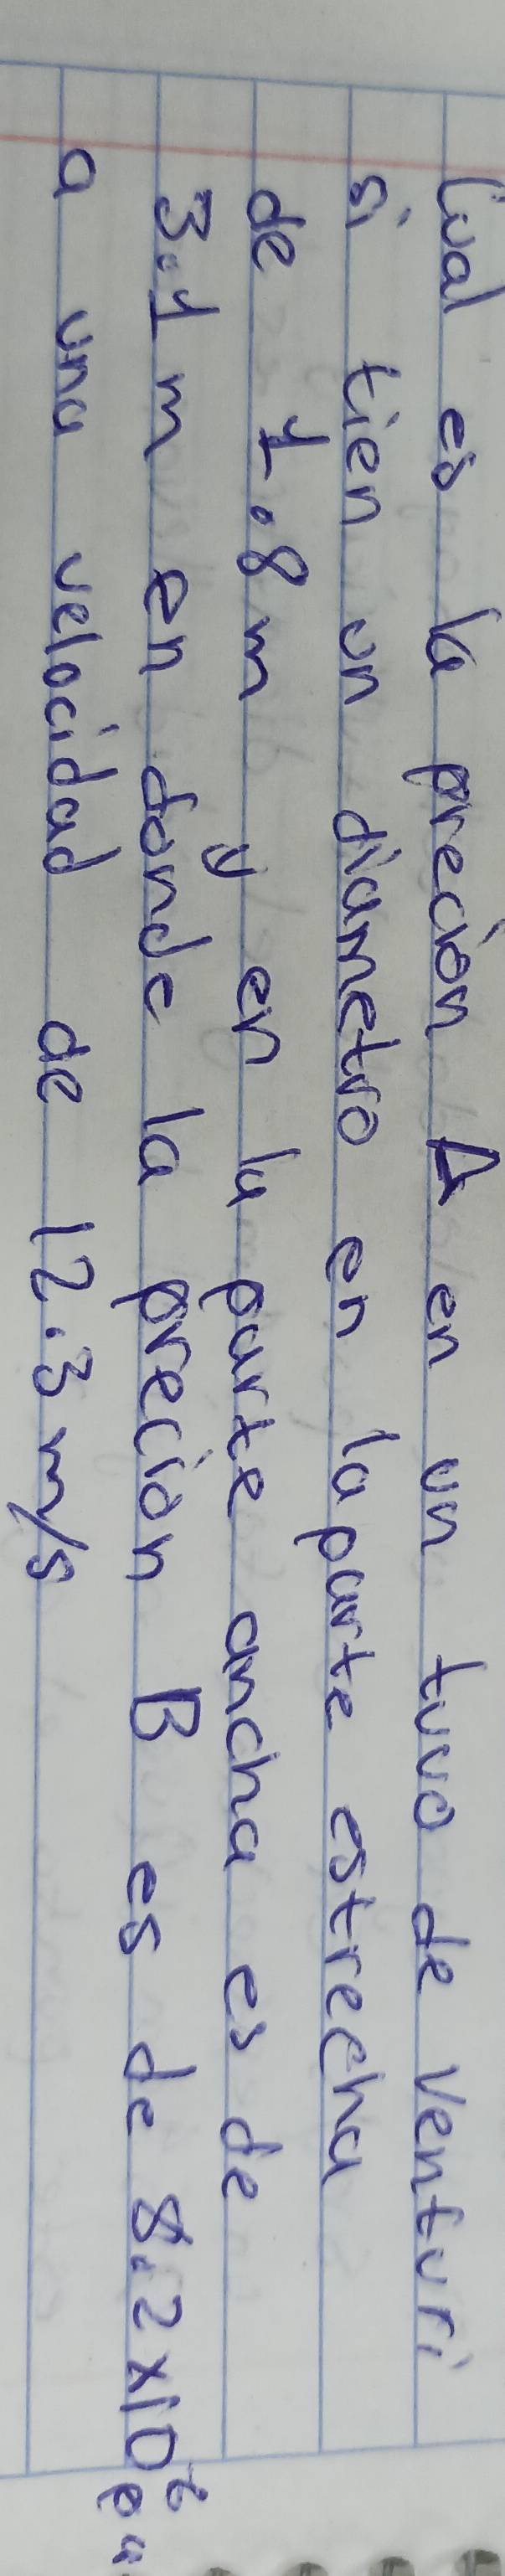 Cual es la preción A en un tuvo de Venturi
si tien un diametro en la parte estrecha
de 1.8 m y en la parte ancha es de
3.1 m en donde la preción B es de 8.2 x 10⁶ Pa
a una velocidad de 12.3 m/s